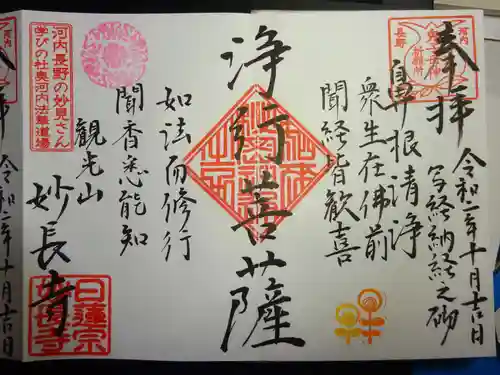 奉拝
河内
長野
令和二年十月吉日
写経納経之砌
鼻根清浄
衆生在佛前
聞経皆歓喜
浄行菩薩
如法而修行
聞香悉能知
観光山
妙長寺
日蓮宗
妙長寺
河内長野の妙見さん
学びの杜奥河内法華道場
河内
長野
令和二年十月吉日